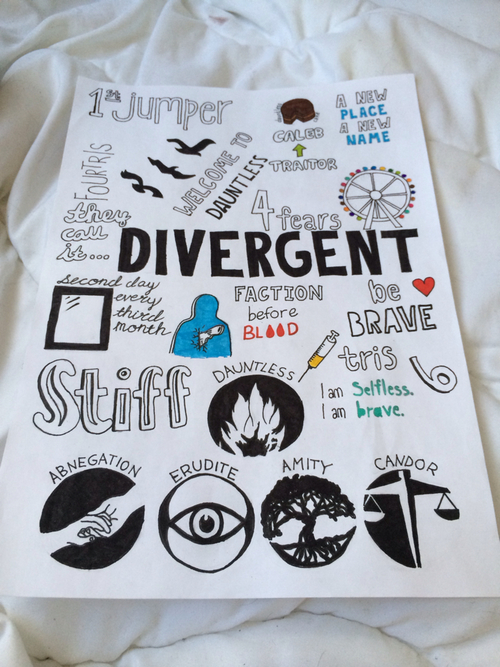 1st jumper
CALEB
TRAITOR
A NEW
PLACE
A NEW
NAME
FOURTRIS
WELCOME TO
DAUNTLESS
4 fears
they
call
it...
DIVERGENT
second day
every
third
month
FACTION
before
BLOOD
be
BRAVE
Stiff
DAUNTLESS
tris
6
I am Selfless.
I am brave.
ABNEGATION
ERUDITE
AMITY
CANDOR